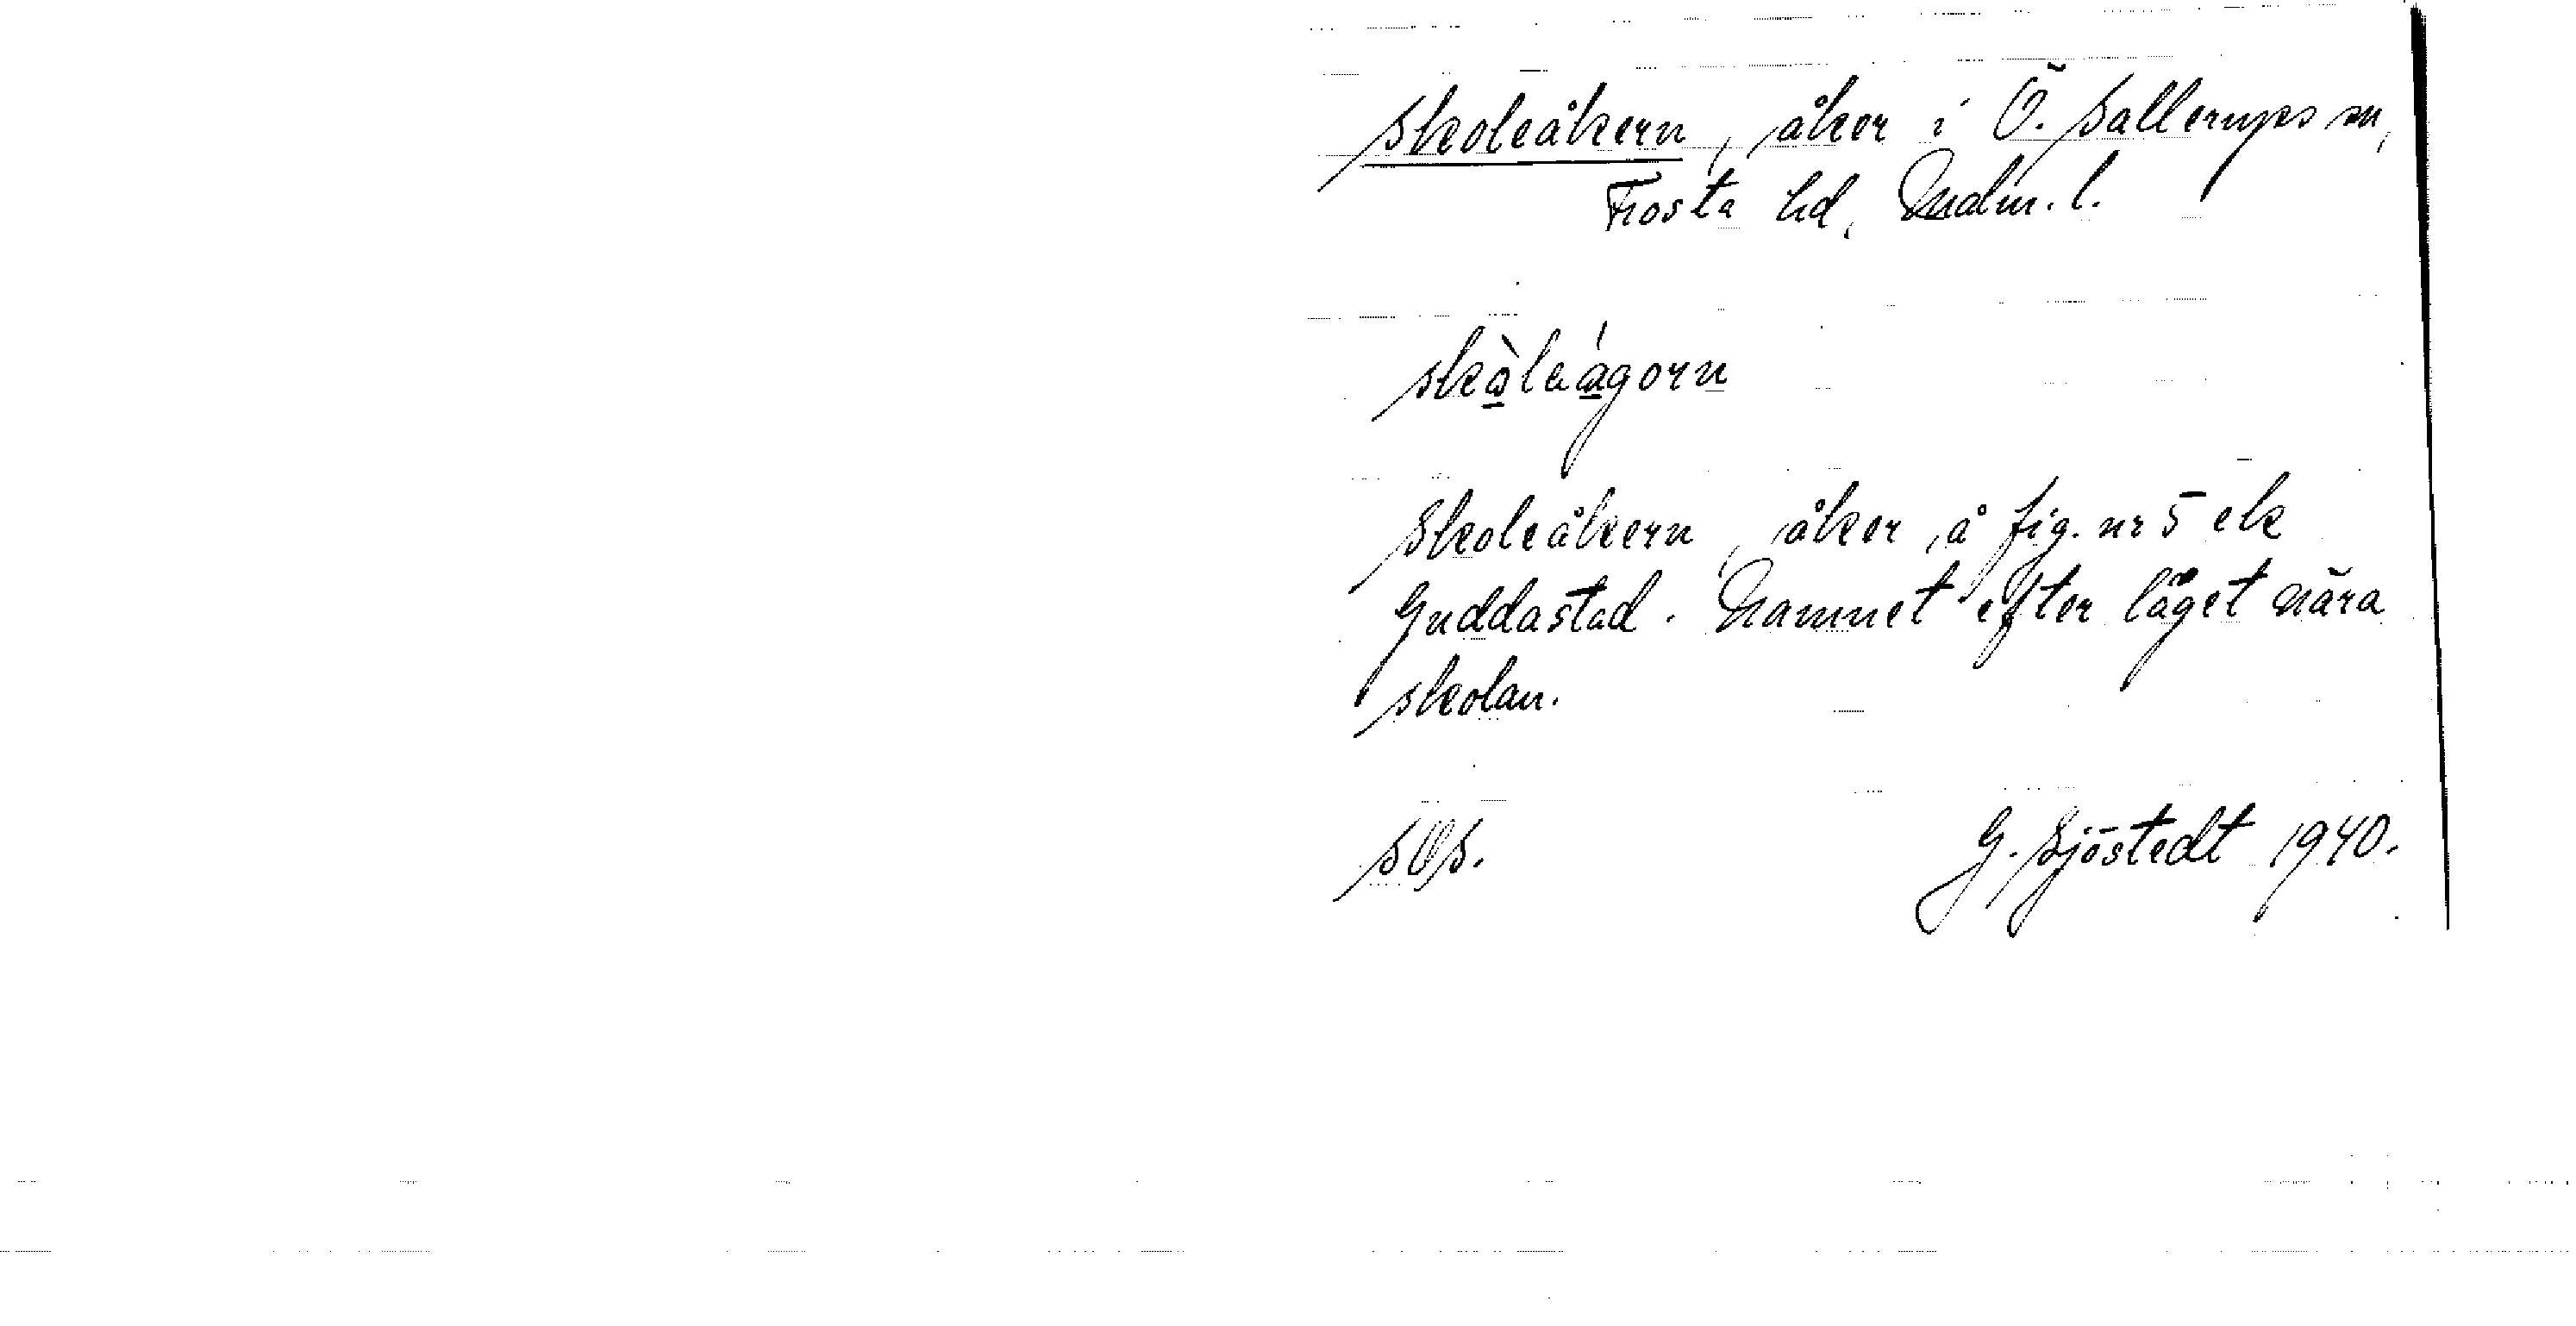 Skoleåkern, åker i Ö. Sallerups sn,
Frosta hd, Malm. l.
skòleágorn
Skoleåkern, åker å fig. nr 5 ek
Guddastad. Namnet efter läget nära
skolan.
SOS.
G. Sjöstedt 1940.